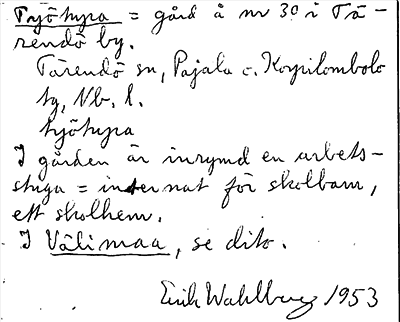 Työtupa = gård å nr 30 i Tä-
rendö by.
Tärendö sn, Pajala o. Korpilombolo
tg, Nb. l.
työtupa
I gården är inrymd en arbets-
stuga = internat för skolbarn,
ett skolhem.
I Välimaa, se dito.
Erik Wahlberg 1953